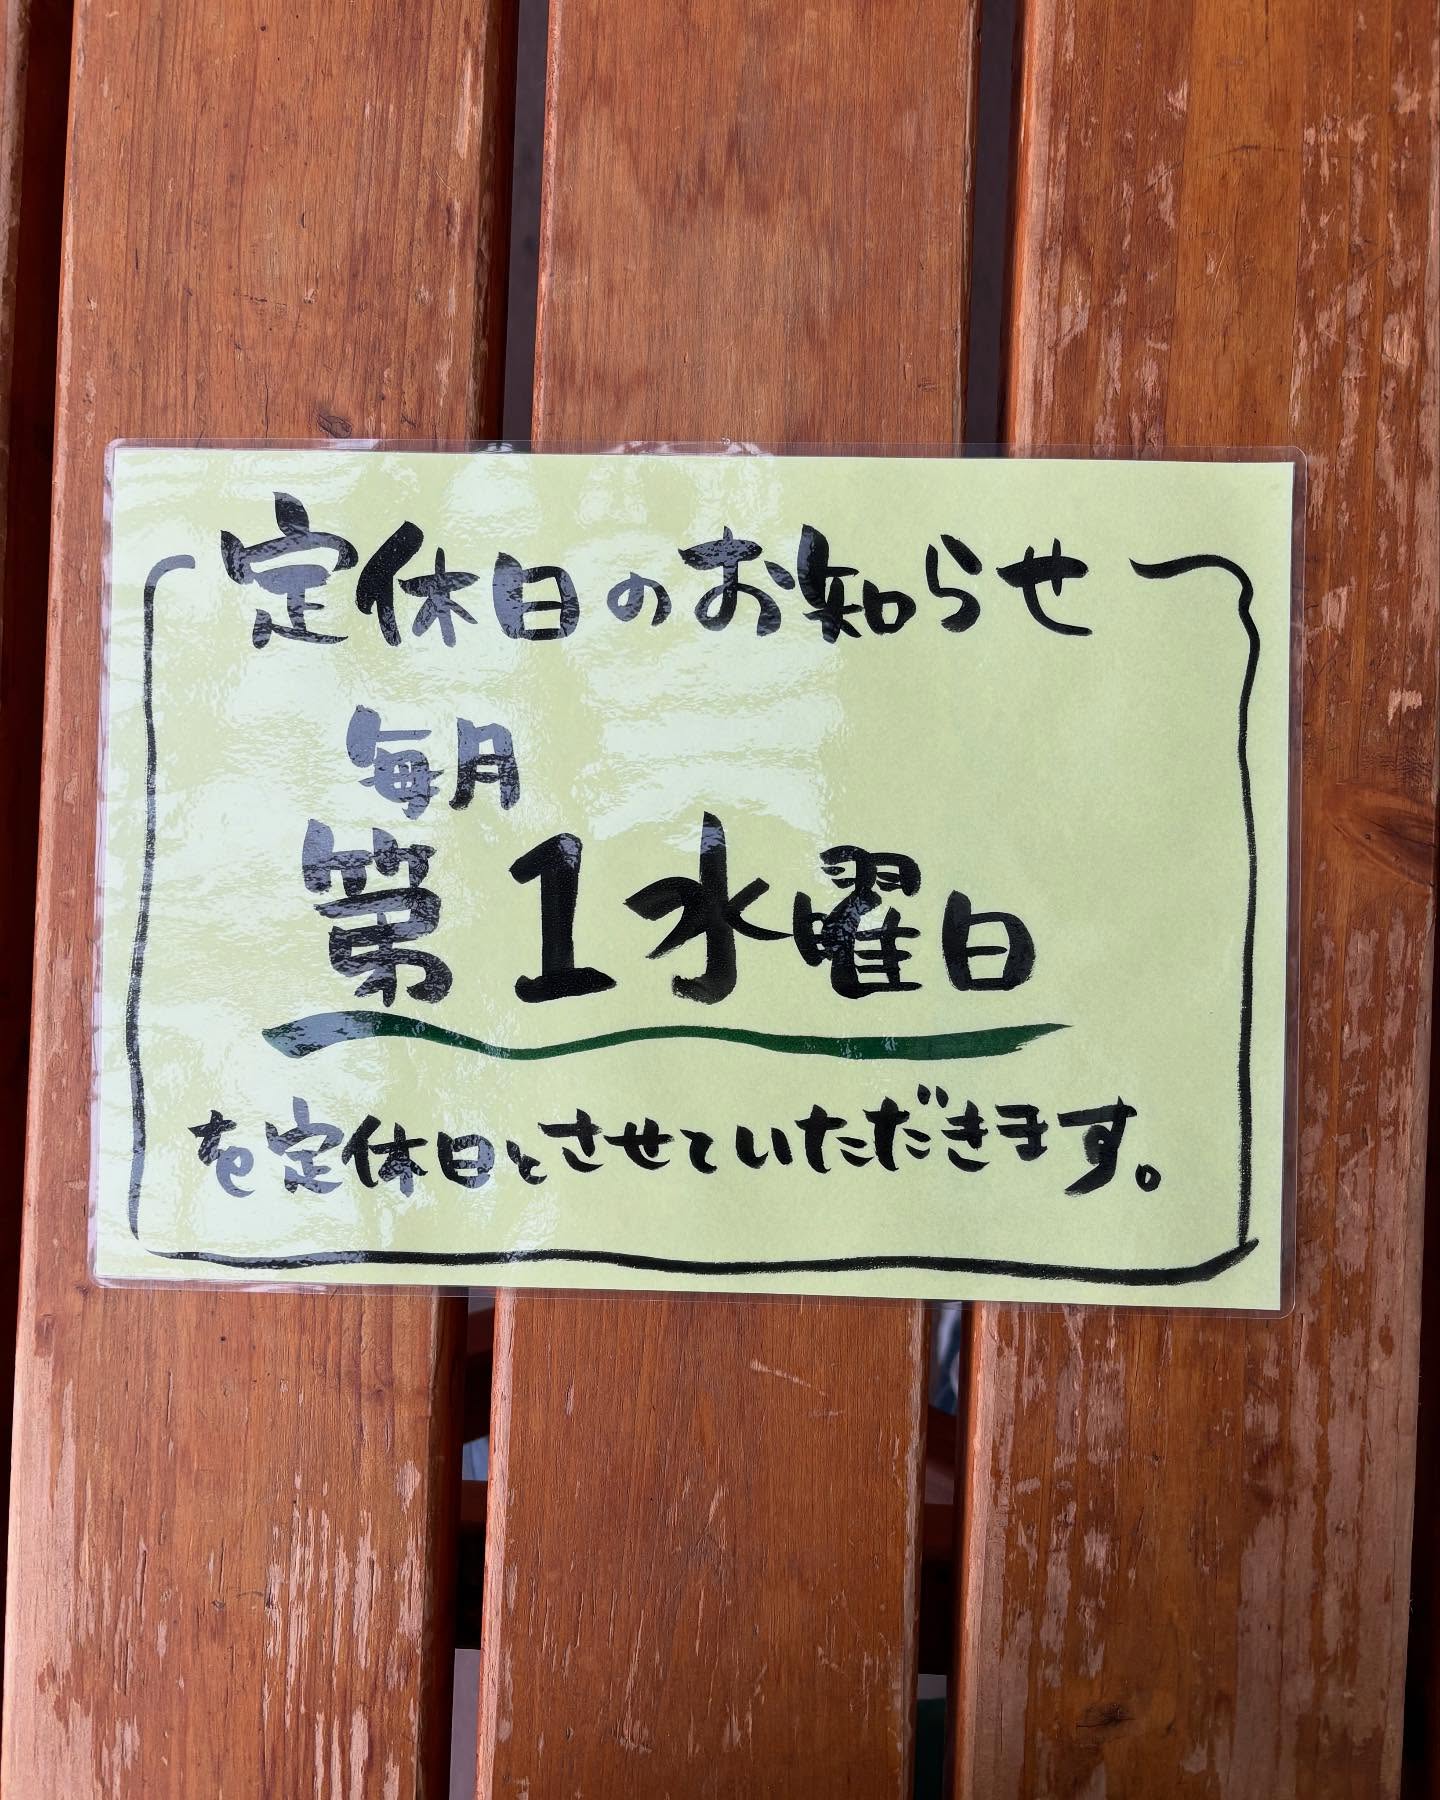 定休日のお知らせ
毎月
第1水曜日
を定休日とさせていただきます。